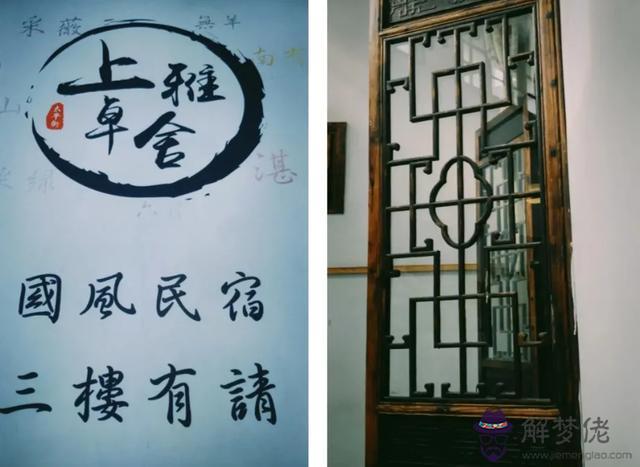 采薇 無羊
南有
山
湛
上卓
雅舍
太平街
國風民宿
三樓有請
解梦佬
www.jiemenglao.com